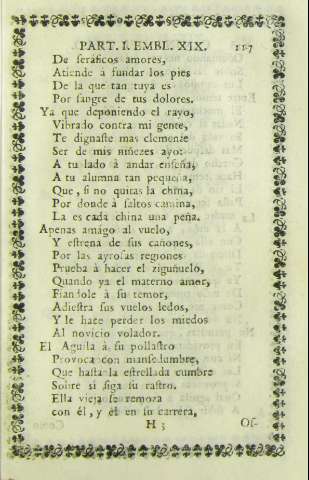 PART. I. EMBL. XIX. 117
De seraficos amores,
Atiende à fundar los pies
De la que tan tuya es
Por sangre de tus dolores.
Ya que deponiendo el rayo,
Vibrado contra mi gente,
Te dignaste mas clemente
Ser de mis niñezes ayo:
A tu lado à andar enseña,
A tu alumna tan pequeña,
Que, si no quitas la china,
Por donde à saltos camina,
La es cada china una peña.
Apenas amago al vuelo,
Y estrena de sus cañones,
Por las ayrosas regiones
Prueba à hacer el ziguñuelo,
Quando ya el materno amor,
Fiandole à su temor,
Adiestra sus vuelos ledos,
Y le hace perder los miedos
Al novicio volador.
El Aguila à su pollastro
Provoca con mansedumbre,
Que hasta la estrellada cumbre
Sobre si siga su rastro.
Ella vieja se remoza
con él, y él en su carrera,
H 3 Os-